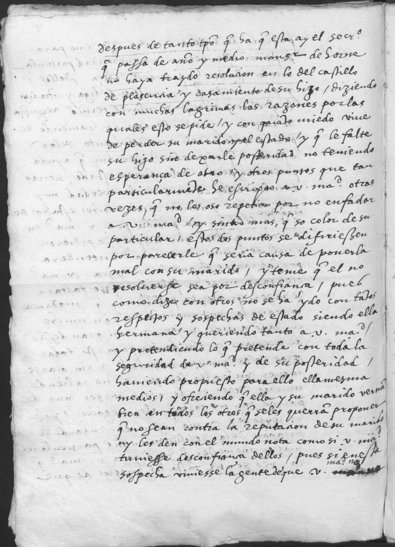 despues de tanto tpo que ha que esta ay el secro
que passa de año y medio, monsr de horne
no haya traydo resolucion en lo del castillo
de plasencia y casamiento de su hijo, diziendo
con muchas lagrimas las razones por las
quales esto se pide, y con quanto miedo vive
de perder su marido y el estado, y que le falte
su hijo sin dexarle posteridad, no teniendo
esperança de otro, y otros puntos que tan
particularmente he escripto a v. mad otras
vezes, que no los oso repetir por no enfadar
a v. mad, y sintio mas, que so color de su
particular, estos dos puntos se difiriessen
por parecerle que seria causa de ponerla
mal con su marido, y teme que el no
resolverse sea por desconfiança, pues
como dize con otros no se ha ydo con tantos
respectos y sospechas de estado siendo ella
hermana y queriendo tanto a v. mad,
y pretendiendo lo que pretende con toda la
seguridad de v. mad y de su posteridad,
haviendo propuesto para ello ella mesma
medios, y ofreciendo que ella y su marido vernan
bien en todos los otros que se les querran proponer
que no sean contra la reputacion de su marido
ny les den con el mundo nota como si v. mad
tuviesse desconfiança dellos, pues si en essa
sospecha viniesse la gente de que v. mad no